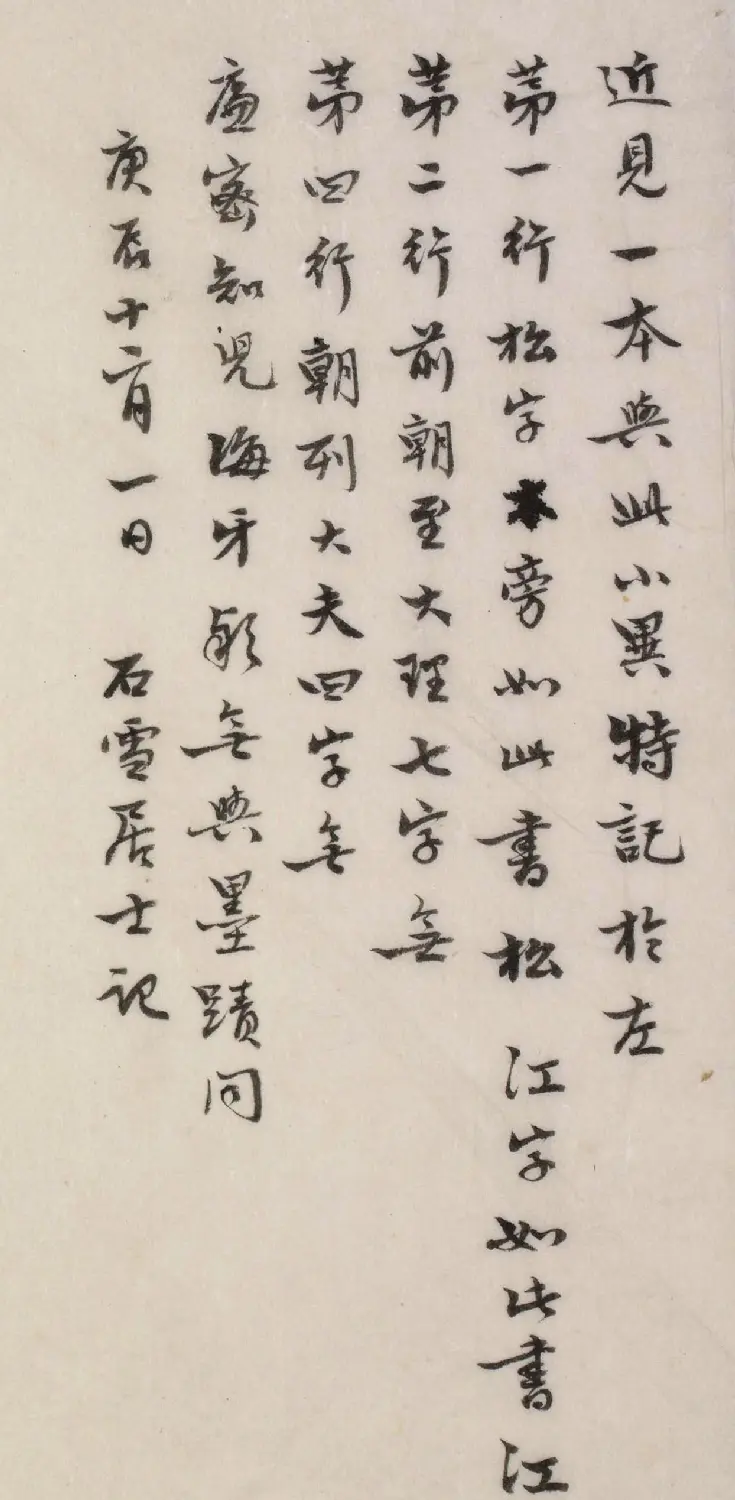 近見一本與此小異特記於左
第一行松字本旁如此書松 江字如此書江
第二行前朝至大理七字無
第四行朝列大夫四字無
廉密知兒海牙款無與墨蹟同
庚辰十二月一日 石雪居士記